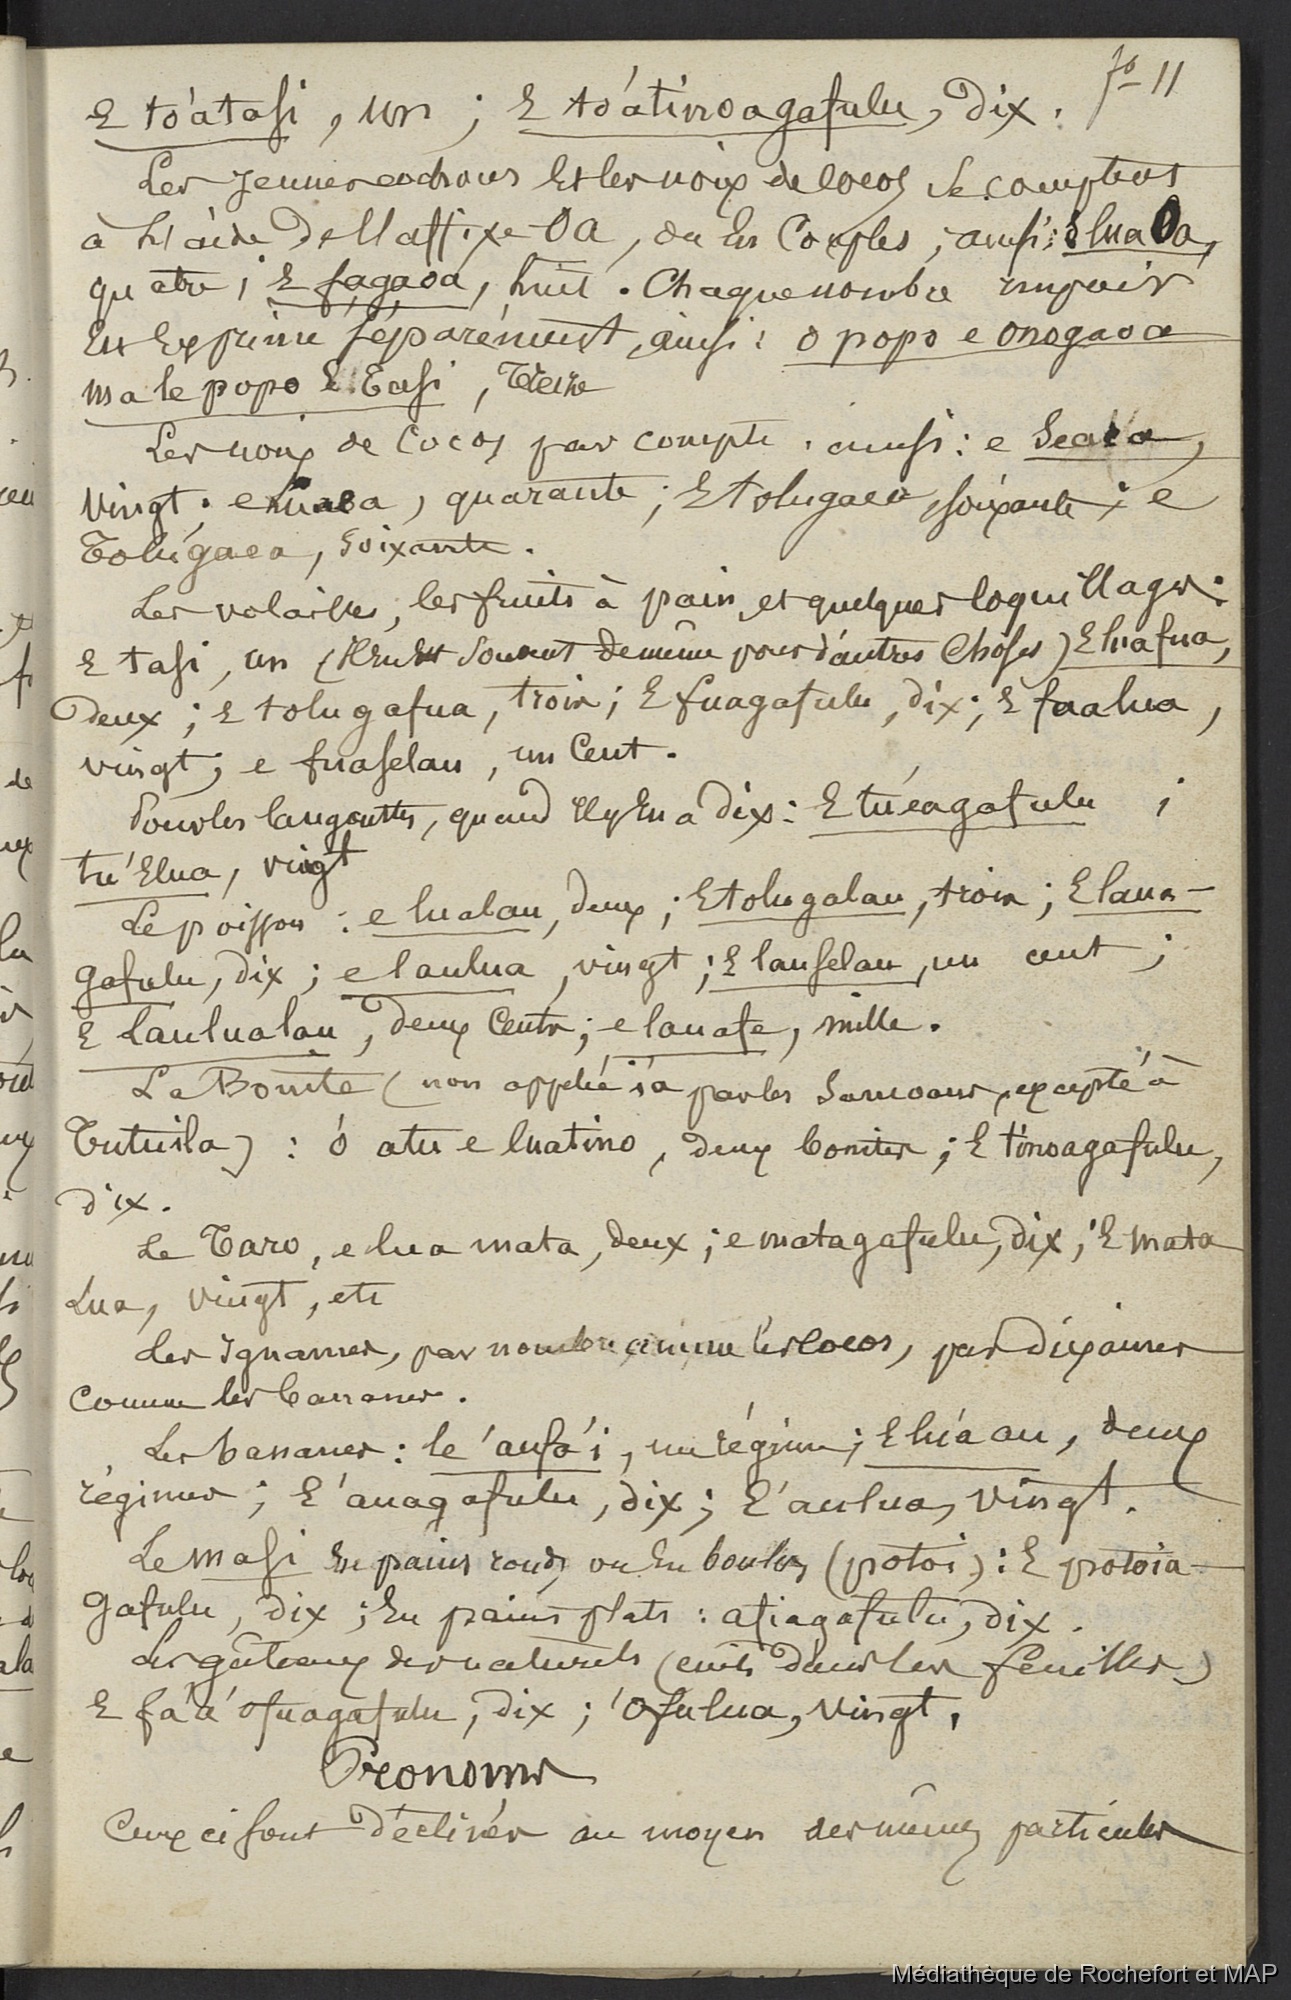 fo 11
E to'atasi, un ; E to'atinoagafulu, Dix.
Les jeunes cochons et les noix de cocos se comptent
à l'aide de l'affixe Oa, ou en Couples ; ainsi : e luaOa,
quatre ; E fagaoa, huit. Chaque nombre impair
est exprimé séparément, ainsi : o popo e onogaoa
ma le popo E Tasi, Treize
Les noix de Cocos par compte, ainsi : e Seaea,
vingt. e luaea, quarante ; E tolugaea, soixante ; e
Tolugaea, soixante.
Les volailles, les fruits à pain, et quelques coquillages :
E tasi, un (Il en est souvent de même pour d'autres Choses) E luafua,
Deux ; E tolugafua, trois ; E fuagafulu, dix ; E faalua,
vingt ; e fuaselau, un Cent.
Pour les langoustes, quand Il y en a Dix : E tu'eagafulu ;
tu'Elua, vingt
Le poisson : e lualau, deux ; E tolugalau, trois ; E laua-
gafulu, dix ; e laulua, vingt ; E lauselau, un cent ;
E laulualau, deux Cents ; e lauafe, mille.
La Bonite (non appelée i'a par les Samoans, excepté à
Tutuila) : ó atu e luatino, deux bonites ; E tinoagafulu,
dix.
Le Taro, e lua mata, deux ; e matagafulu, dix ; E mata
Lua, vingt, etc
Les Ignames, par nombre comme les cocos, par dixaines
comme les bananes.
Les bananes : le 'aufa'i, un régime ; E lu'a au, deux
régimes ; E 'auagafulu, dix ; E 'aulua, vingt.
Le masi en pains ronds, ou en boules (potoi) : E potoia-
gafulu, dix ; En pains plats : afiagafulu, dix.
Les gâteaux des naturels (cuits dans les feuilles)
E fa'a 'ofuagafulu, dix ; 'Ofulua, vingt.
Pronoms
Ceux ci sont déclinés au moyen des mêmes particules
Médiathèque de Rochefort et MAP